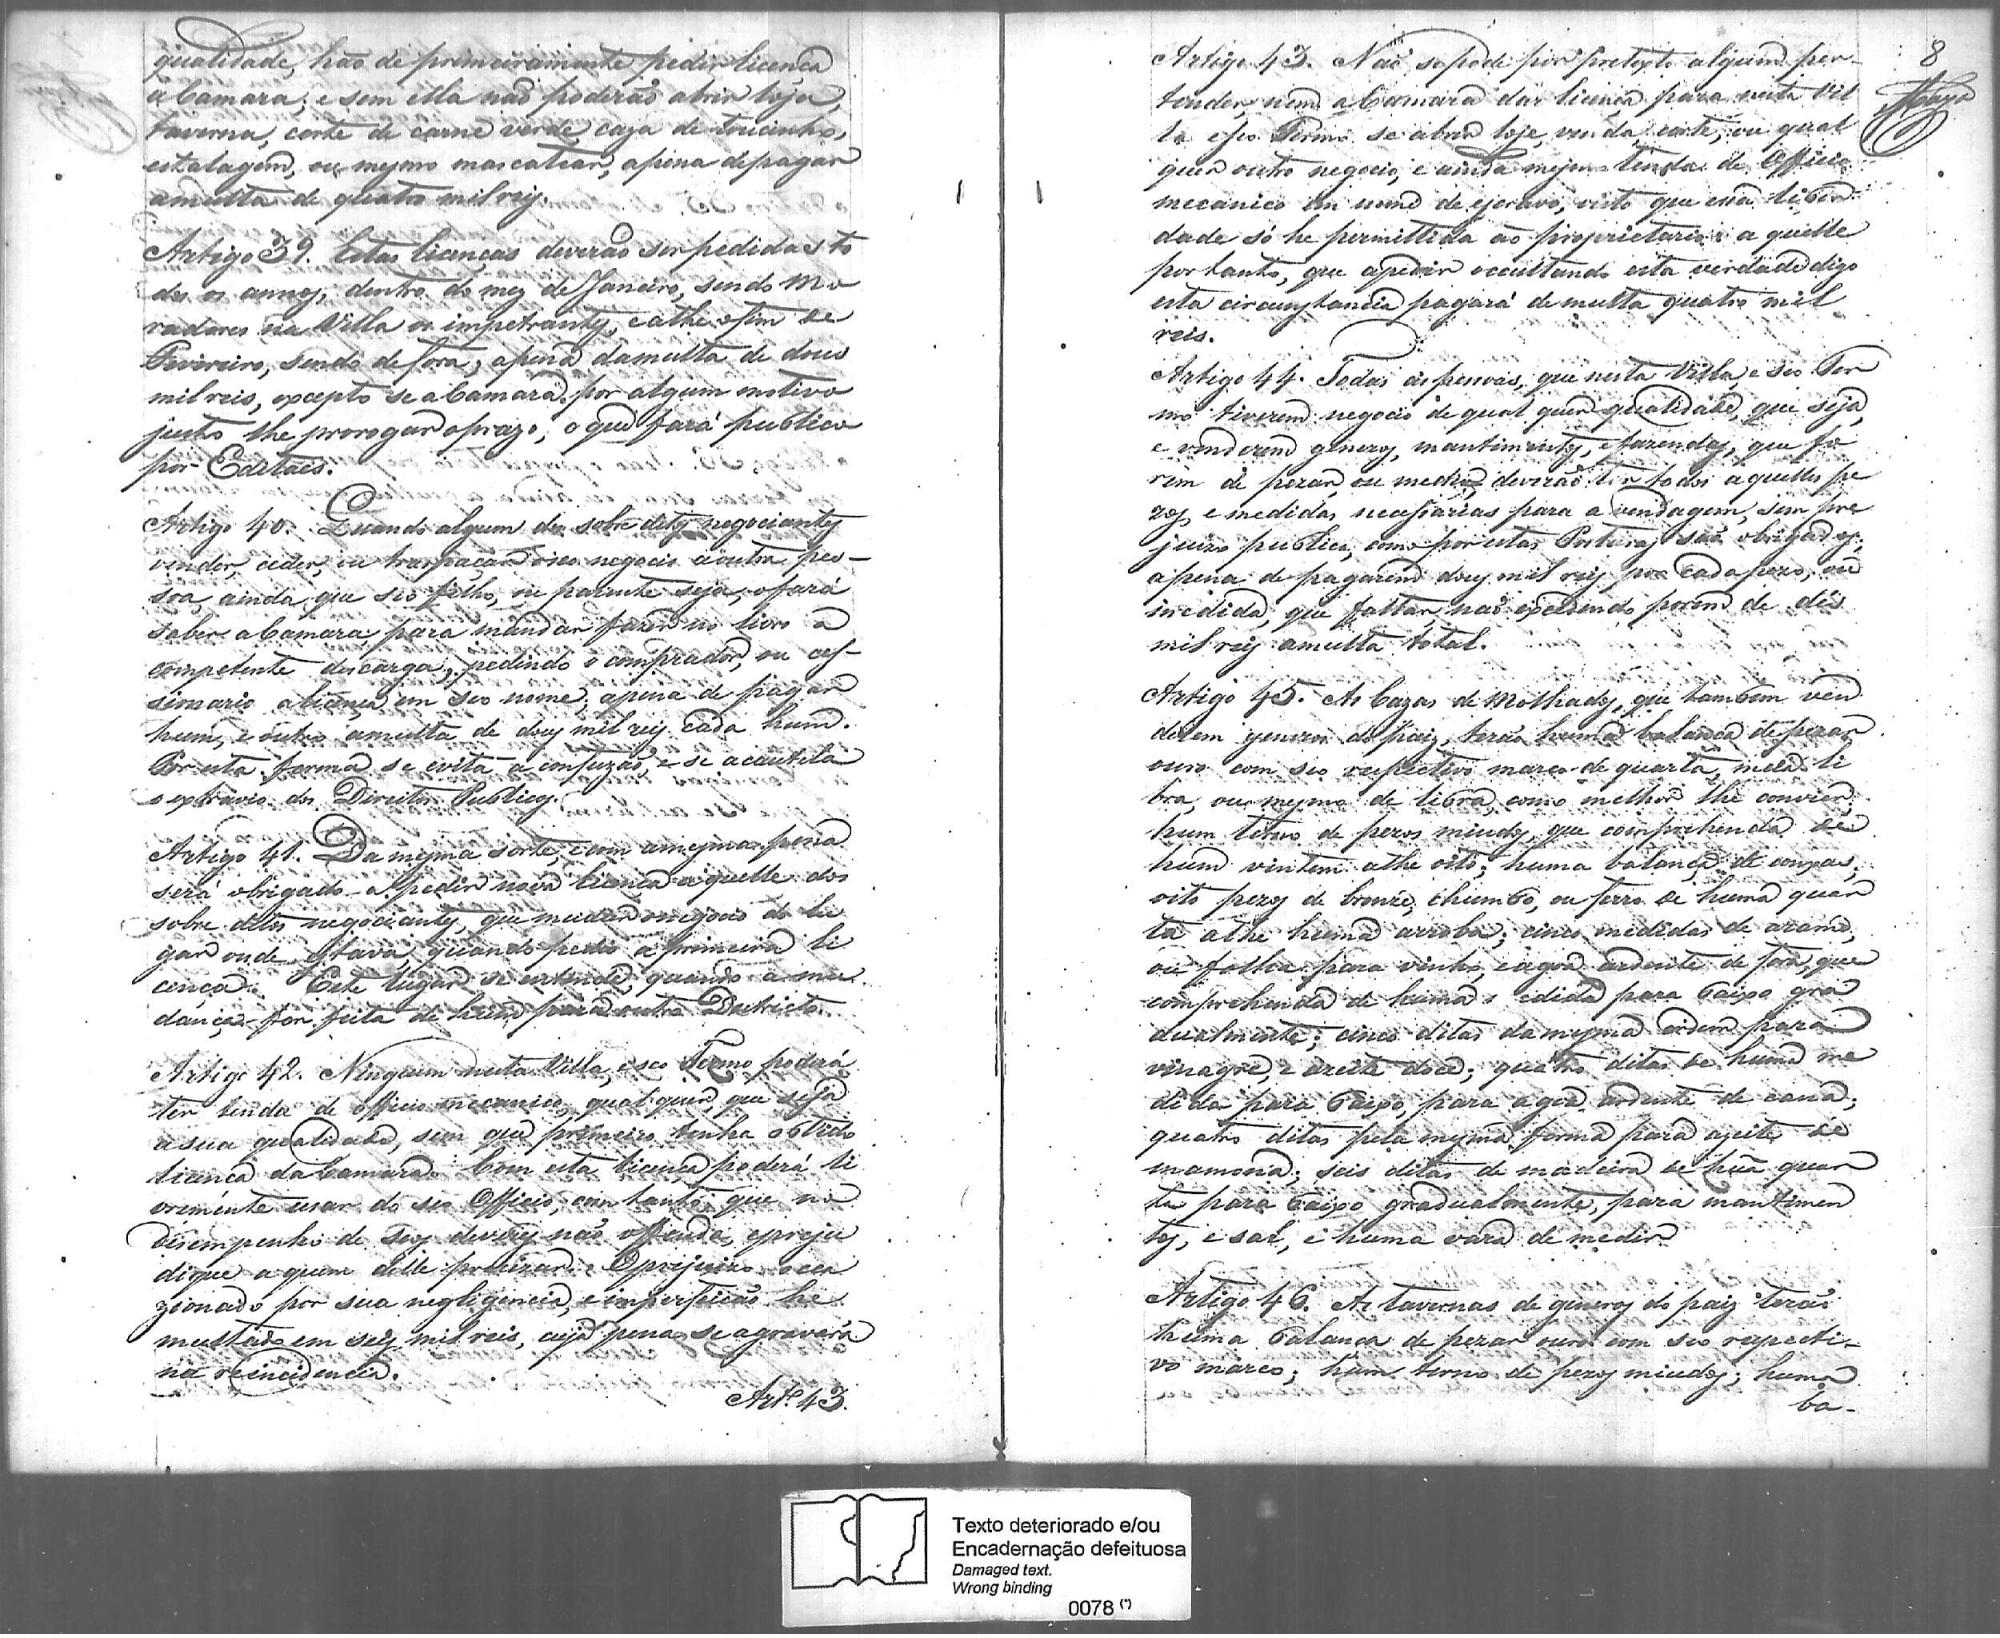 qualidade, hão de primeiramente pedir licença
a Camara; e sem ella não poderão abrir loja,
taverna, corte de carne verde, caza de toucinho,
estalagem, ou mesmo mascatear, apena depagar
amulta de quatro mil reis.
Artigo 39. Estas licenças deverão ser pedidas to
dos os annos, dentro do mez de Janeiro, sendo mo
radores na Villa os impetrantes, e athe o fim de
Fevereiro, sendo de fora; apena damulta de dous
mil reis, excepto se a Camara, por algum motivo
justo lhe prorogar o prazo, o que fará publico
por Editaes.
Artigo 40. Quando algum dos sobre ditos negociantes
vender, ceder, ou traspaçar o seo negocio a outra pes-
soa, ainda que seo filho, ou parente seja, o fará
saber a Camara, para mandar fazer no livro a
competente descarga, pedindo o comprador, ou ces-
sionario a licença em seo nome; apena de pagar
hum, e outro amulta de dous mil reis cada hum.
Por esta forma se evita a confuzão, e se acautela
o extravio dos Direitos Publicos.
Artigo 41. Da mesma sorte, e com amesma pena
será obrigado a pedir nova licença aquelle dos
sobre ditos negociantes, que mudar onegocio do lu
gar onde estava, quando pedio a primeira li
cença. Este lugar se entende, quando a mu
dança for feita de hum para outro Destricto.
Artigo 42. Ninguem nesta Villa, e seo Termo poderá
ter tenda de officio mecanico, qual quer, que seja
a sua qualidade, sem que primeiro tenha obtido
licença da Camara. Com esta licença poderá li
vremente usar do seo Officio, com tanto, que no
desempenho de seos deveres não offenda, eprejú
dique a quem delle precizar. Oprejuizo occa
zionado por sua negligencia, e imperfeição he
multado em seis mil reis, cuja pena se agravará
na reincidencia.
Art.º 43.
8
Artigo 43. Não se pode por pretexto algum per-
tender, nem a Camara dar licença para nesta Vil
la e seo Termo se abrir loje, venda, corte, ou qual
quer outro negocio, e ainda mesmo tenda de Officio
mecanico em nome de escravo, visto que essa liber
dade só he permittida ao proprietario: aquelle
portanto, que apedir occultando esta verdade digo
esta circunstancia pagará de multa quatro mil
reis.
Artigo 44. Todas as pessoas, que nesta Villa, e seo Ter
mo tiverem negocio de qual quer qualidade, que seja,
e venderem generos, mantimentos, e fazendas, que fo
rem de pezar, ou medir, deverão ter todos aquelles pe
zos, e medidas necessarias para a vendagem, sem pre
juizo publico, como por estas Posturas são obrigados;
apena de pagarem dous mil reis por cada pezo, ou
medida, que faltar, não excedendo porem de dés
mil reis amulta total.
Artigo 45. As Cazas de Molhados, que tambem ven
derem generos do paiz, terão huma balança de pezar
ouro com seo respectivo marco de quarta, meia li
bra, ou mesmo de libra, como melhor lhe convier;
hum terno de pezos miudos, que comprehenda de
hum vintem athe oito; huma balança de conxas,
oito pezos de bronze, chumbo, ou ferro de huma quar
ta athe huma arroba; cinco medidas de arame,
ou folha para vinho, e agoa ardente de fora, que
comprehenda de huma medida para baixo gra
dualmente; cinco ditas da mesma ordem para
vinagre, e azeite doce; quatro ditas de huma me
dida para baixo, para agoa ardente de cana;
quatro ditas pela mesma forma para azeite de
mamona; seis ditas de madeira de hũa quar
ta para baixo gradualmente, para mantimen
tos, e sal, e huma vara de medir.
Artigo 46. As tavernas de generos do paiz terão
huma balança de pezar ouro com seo respecti-
vo marco; hum terno de pezos miudos; huma
ba-
Texto deteriorado e/ou
Encadernação defeituosa
Damaged text.
Wrong binding
0078 (*)